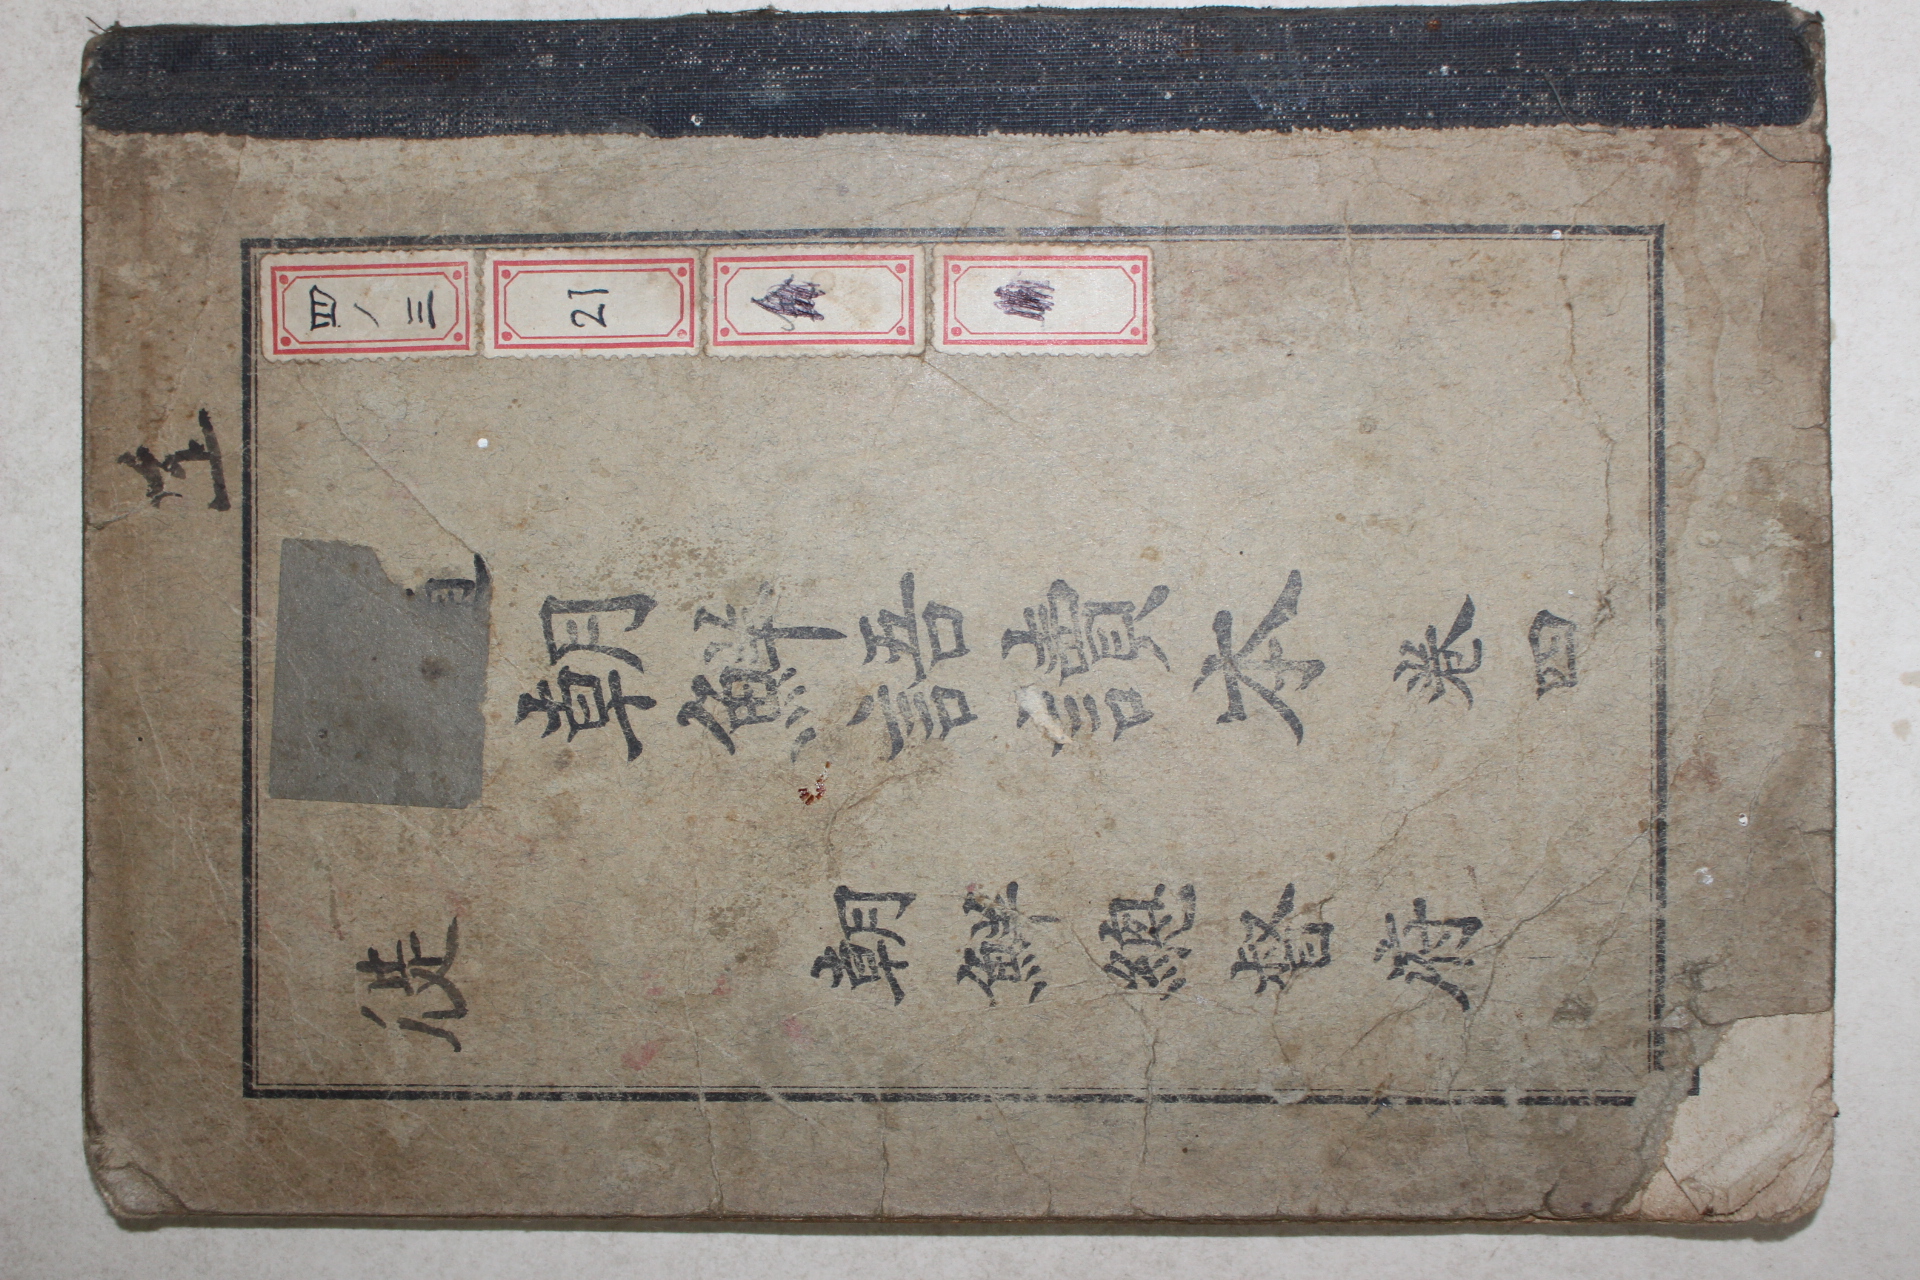 四ノ三
21
朝鮮語讀本 卷四
朝鮮總督府